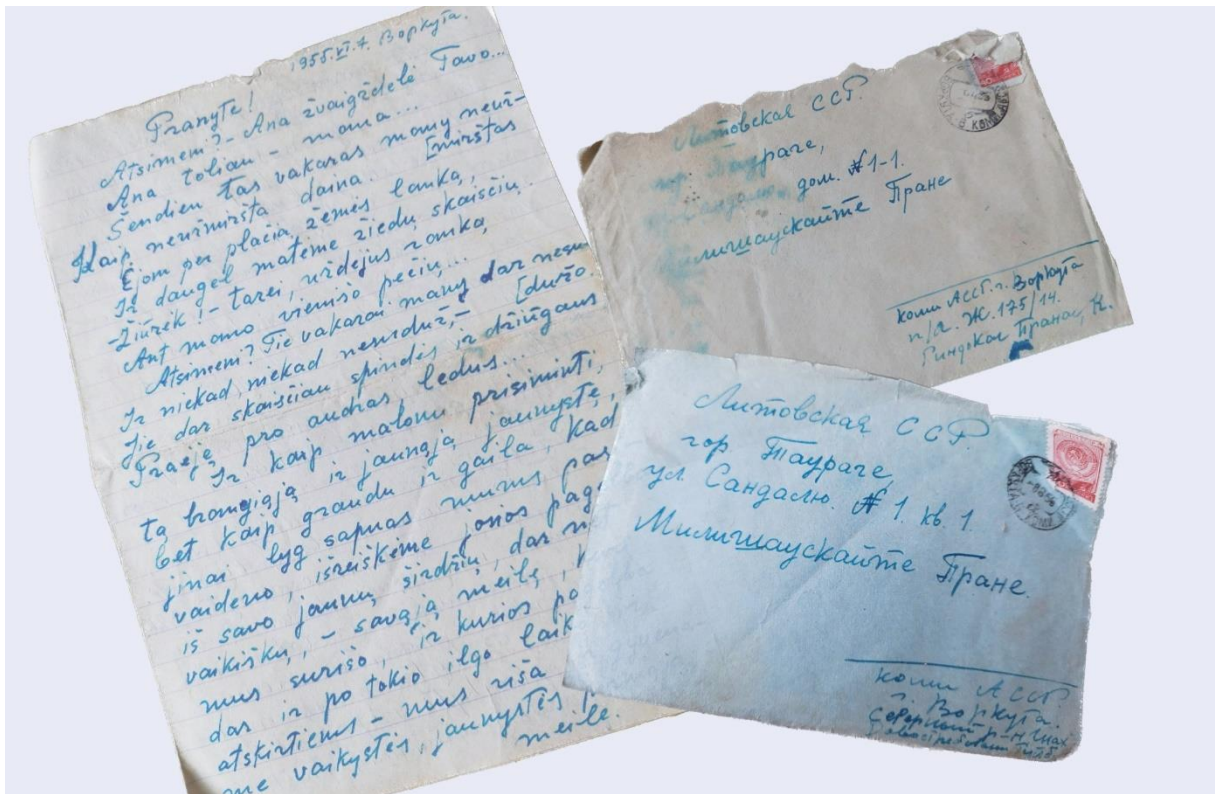 1955.VI.7. Воркута.
Pranyte!
Atsimeni? – Ana žvaigždelė Tavo...
Ana toliau – mano...
Šendien tas vakaras manų neuž-
[mirštas
Kaip neužmiršta daina.
Ėjom per plačią žemės lanką,
Ir daugel matėme žiedų skaisčių.
– Žiūrėk! – tarei, uždėjus ranką
Ant mano vienišo pečių...
Atsimeni? Tie vakarai manų dar nesu
Ir niekad, niekad nesuduž, – [dužo.
Jie dar skaisčiau spindės ir džiūgaus
Praėję pro audras, ledus...
Ir kaip malonu prisiminti,
tą brangiąją ir jaunąją jaunystę,
bet kaip graudu ir gaila, kad
jinai lyg sapnas mums pas
vaideno, išreiškėme josios pag
iš savo jaunų širdžių, dar n
vaikiškų, – savąją meilę, k
mus surišo, ir kurios pa
dar ir po tokio ilgo laik
atskirtiems – mus riša
me vaikystės, jaunystės
meilė.
Литовская ССР.
гор. Таураге,
дом. №1-1.
Милишаускайте Пране
Коми АССР. г. Воркута
п/я. Ж. 175/14.
Пранас, К.
Литовская ССР.
гор. Таураге,
ул. Сандалю. № 1. кв. 1.
Милишаускайте Пране.
Коми АССР
г. Воркута.